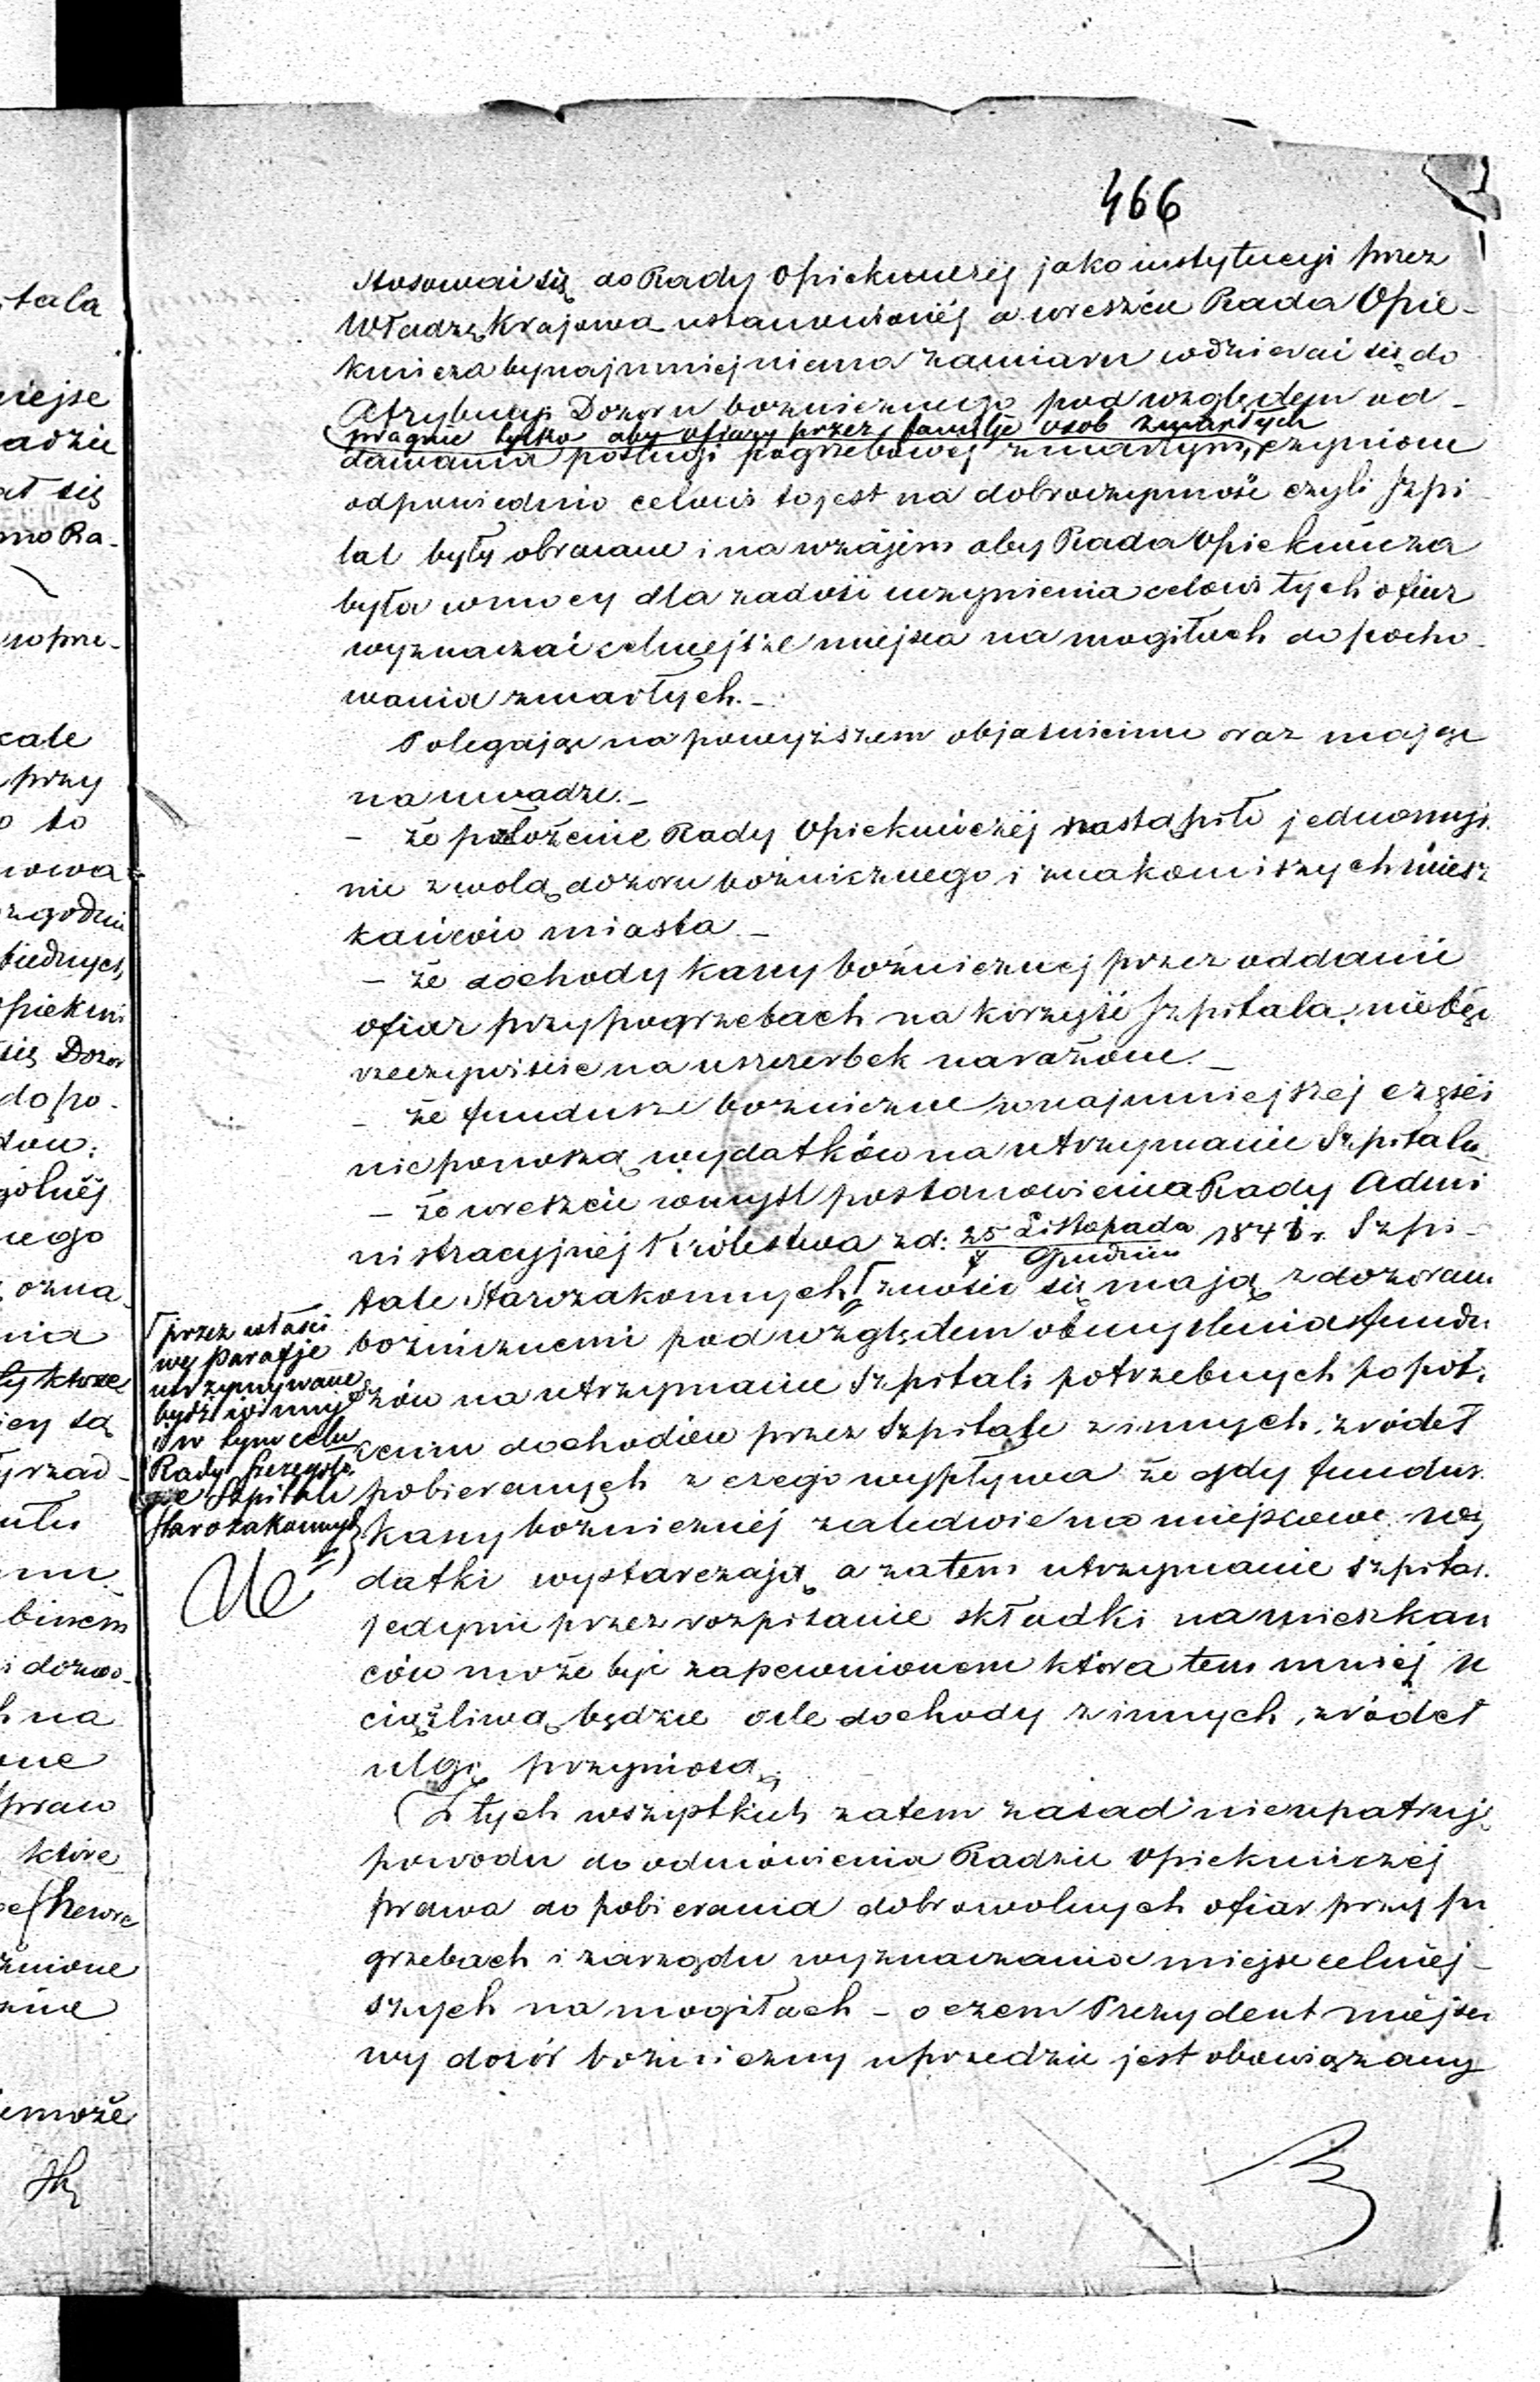 466
stosować się do Rady Opiekuńczéj jako instytucyi przez
Władzę Krajową ustanowionéj a wreszcie Rada Opie-
kuńcza bynajmniej niema zamiaru wdzierać się do
Atrybucyi Dozoru bożnicznego pod względem od-
pragnie tylko aby ofiary przez familje osób zmarłych
dawania posługi pogrzebowej zmarłym, czynione
odpowiednio celowi to jest na dobroczynność czyli Szpi
tal były obracane i na wzajem aby Rada Opiekuńcza
była w mocy dla zadość uczynienia celowi tych ofiar
wyznaczać celniejsze miejsca na mogiłach do pocho-
wania zmarłych.-
Polegając na powyższem objaśnieniu oraz mając
na uwadze.-
- że położenie Rady Opiekuńczéj nastąpiło jednomyśl
nie z wolą dozoru bożnicznego i znakomitszych miesz
kańców miasta -
- że dochody kassy bożnicznej przez oddanie
ofiar przy pogrzebach na korzyść Szpitala, niebędą
rzeczywiście na uszczerbek narażone. -
- że fundusze bożniczne w najmniejszej części
nie ponoszą wydatków na utrzymanie Szpitala
- że wreszcie w myśl postanowienia Rady Admi
nistracyjnéj Królestwa z d: 25 Listopada 1841 r. Szpi-
7 Grudnia
tale Starozakonnych Γ znosić się mają z dozorami
bożnicznemi pod względem obmyślenia fundu
szów na utrzymanie Szpitali potrzebnych po potrą
ceniu dochodów przez Szpitale z innych źródeł
pobieranych z czego wypływa że gdy fundusz
kassy bożnicznéj zaledwie na miejscowe wy
datki wystarczają, a zatem utrzymanie szpitala
jedynie przez rozpisanie składki na mieszkań
ców może być zapewnionem która tem mniéj u
ciążliwą będzie o ile dochody z innych źródeł
ulgę przyniosą.
Z tych wszystkich zatem zasad nieupatruję
powodu do odmówienia Radzie Opiekuńczéj
prawa do pobierania dobrowolnych ofiar przy po
grzebach i zarządu wyznaczania miejsc celniej-
szych na mogiłach - o czem Prezydent miejsco
wy dozór bożniczny uprzedzić jest obowiązany
Γ przez właści
we Parafje
utrzymywane
bydź winny
i w tym celu
Rady Szczegóło
we Szpitali
Starozakonnych